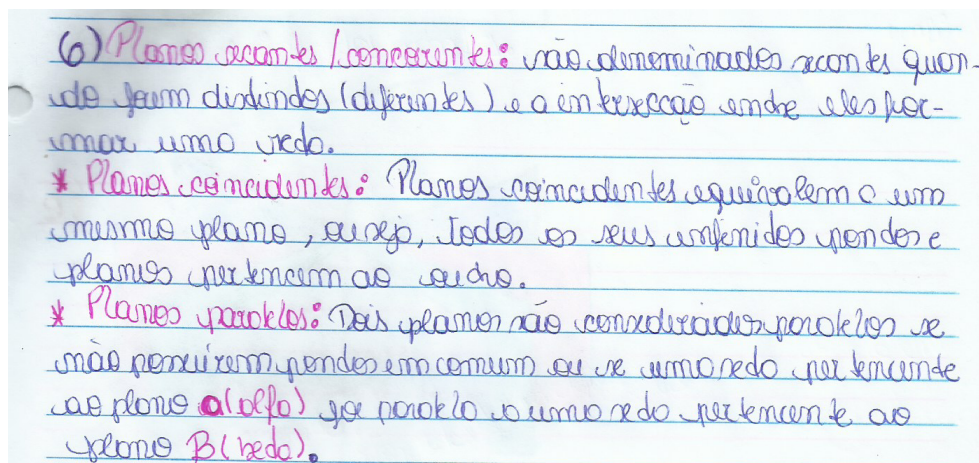 6) Planos secantes/concorrentes: são denominados secantes quan-
do forem distindos (diferentes) e a intersecção endre eles for-
mar uma redo.
* Planos coincidentes: Planos coincidentes equivalem a um
mesmo plano, ou seja, todos os seus infinidos pondos e
planos pertencem ao oudro.
* Planos paralelos: Dois planos são considerados paralelos se
não possuirem pondos em comum ou se uma redo pertencende
ao plano α(alfa) for paralelo a uma redo pertencente ao
plano B(beda).